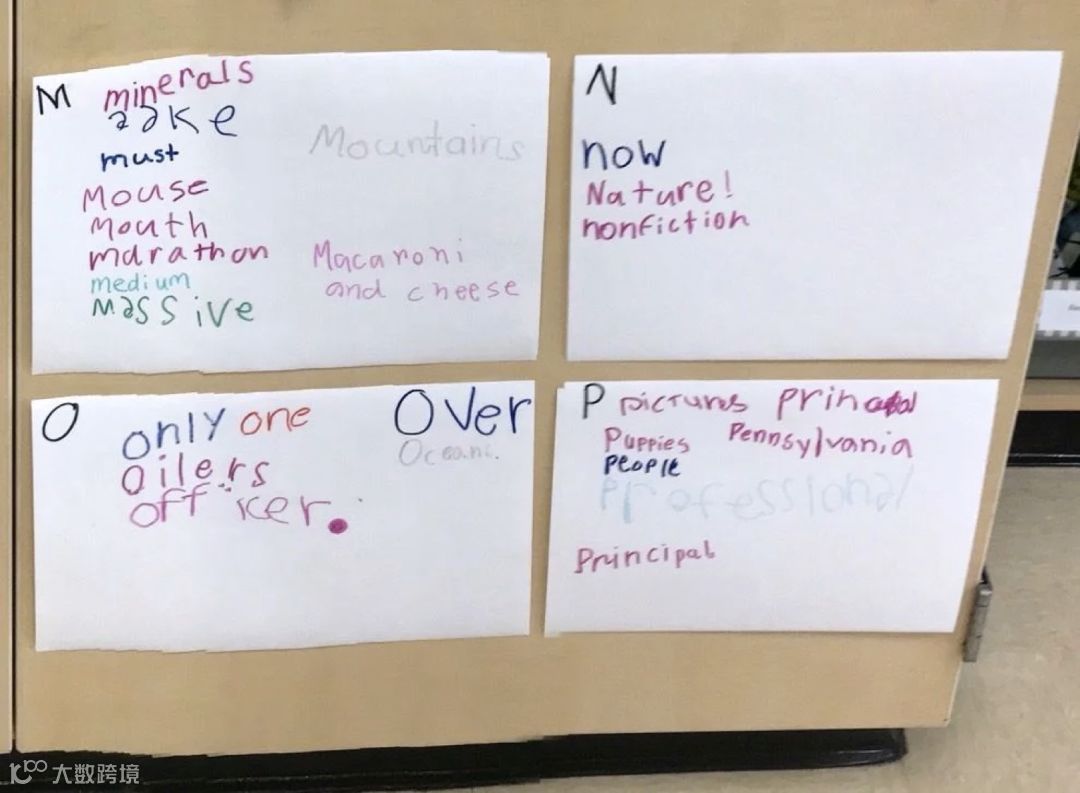 M
minerals
must
Mouse
Mouth
marathon
medium
massive
Mountains
Macaroni
and cheese
N
now
Nature!
nonfiction
O
only one
Oilers
officer.
Over
P pictures
Puppies
Pennsylvania
People
Professional
Principal
大数跨境